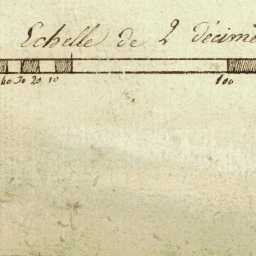 Echelle de 2 décim
40 30 20 10 100